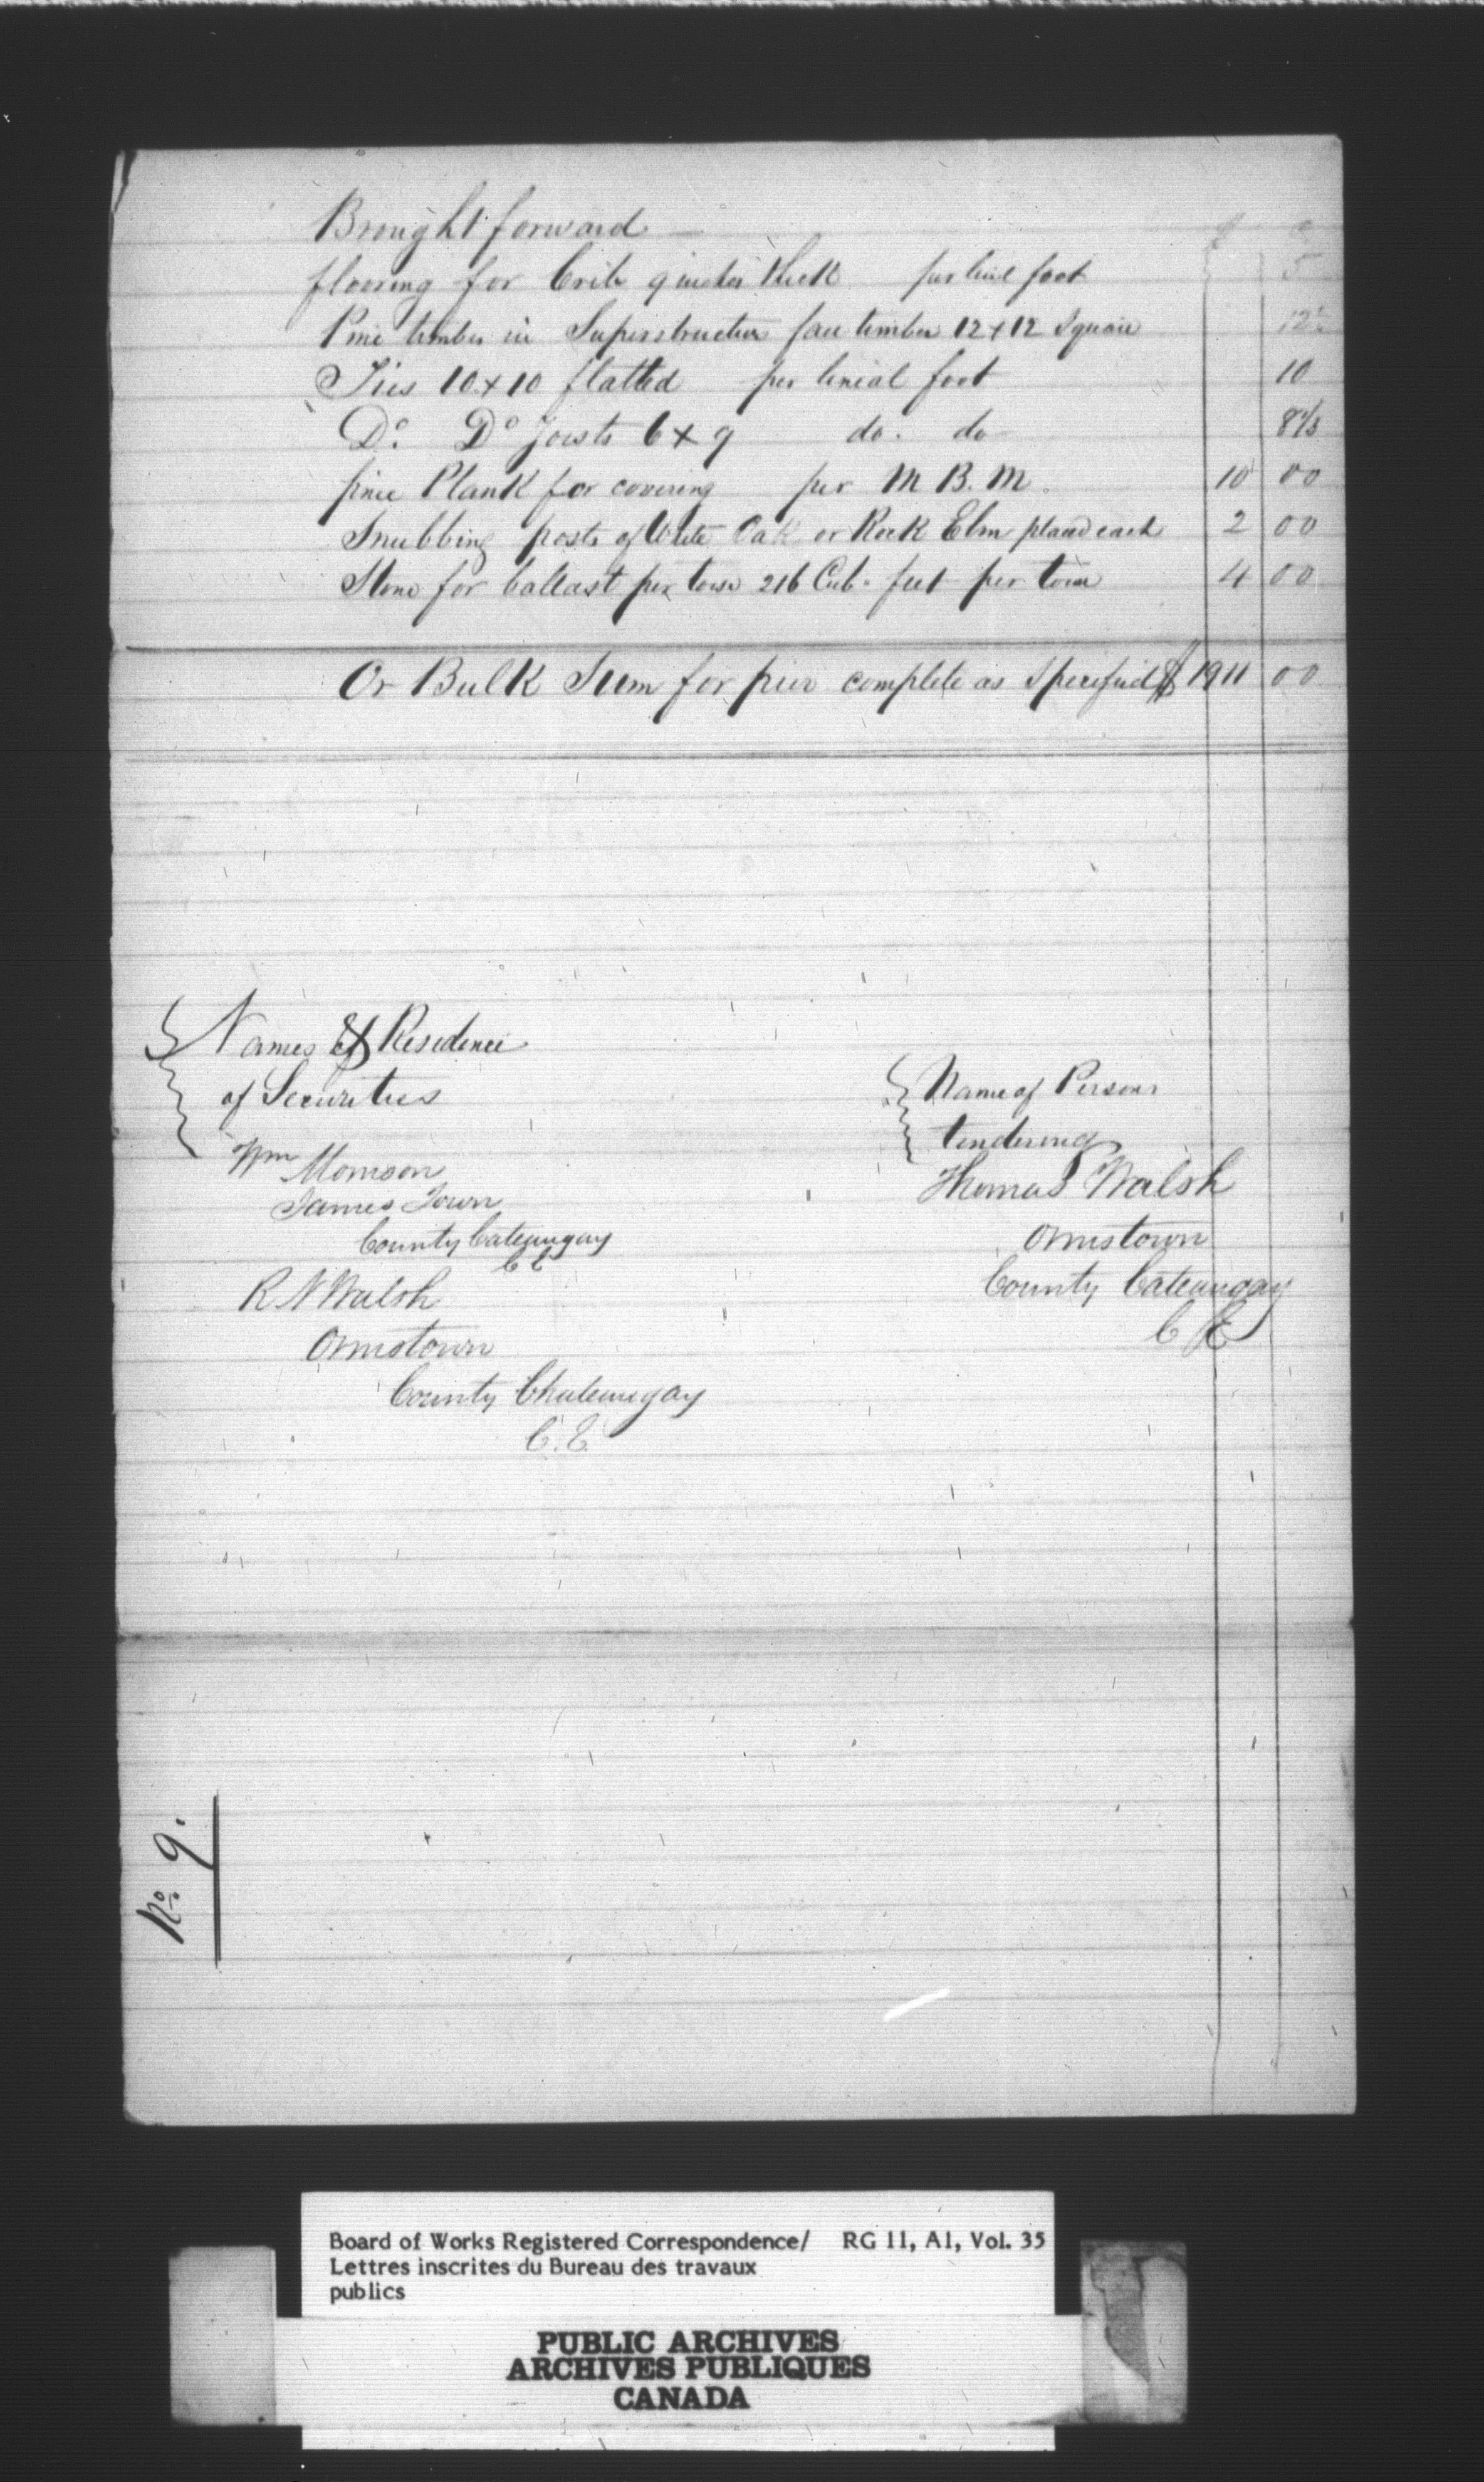 Brought forward
$ c
flooring for Crib 9 inches thick per lineal foot 5
Pine timber in Superstructure face timber 12 + 12 Square 12½
Ties 10 + 10 flatted per linial foot 10
Do. Do Joists 6 + 9 do. do 8⅓
pine Plank for covering per M B. M. 10 00
Snubbing posts of White Oak or Rock Elm pland each 2 00
Stone for ballast per toise 216 Cub. feet per toise 4 00
Or Bulk Sum for pier complete as Specefied $ 1911 00
Names & Residence
of Securities
Wm Morrison
James Town
County Cateaugay
C E
R N Walsh
Ormstown
County Chateaugay
C. E.
Name of Persons
tendering
Thomas Walsh
Ormstown
County Cateaugay
C E
No. 9.
Board of Works Registered Correspondence/ RG 11, A1, Vol. 35
Lettres inscrites du Bureau des travaux
publics
PUBLIC ARCHIVES
ARCHIVES PUBLIQUES
CANADA